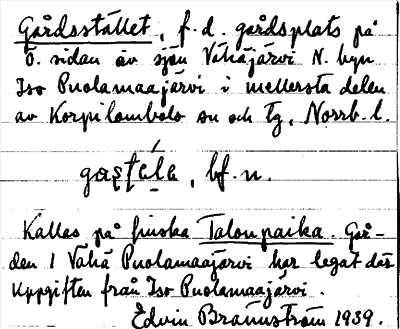 Gårdsstället, f.d. gårdsplats på
Ö. sidan av sjön Vähäjärvi N. byn
Iso Puolamaajärvi i mellersta delen
av Korpilombolo sn och tg, Norrb. l.
bf. n.
Kallas på finska Talonpaika. Går-
den 1 Vähä Puolamaajärvi har legat där
Uppgiften från Iso Puolamaajärvi.
Edvin Brännström 1939.